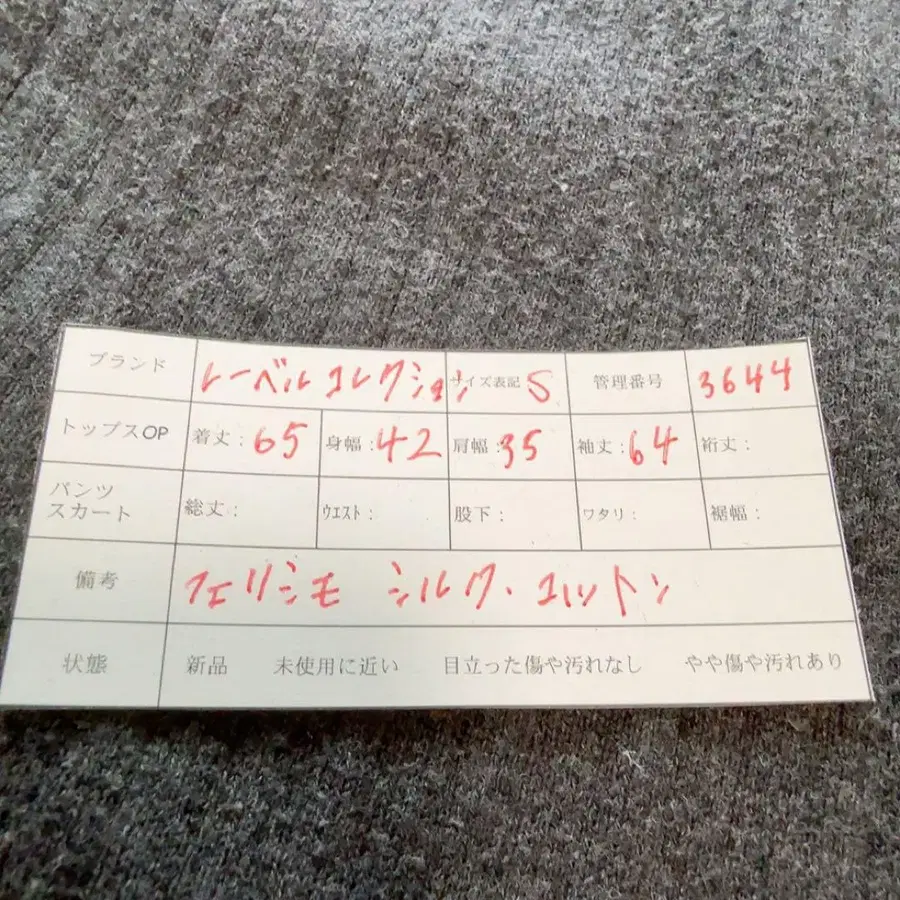 ブランド レーベルコレクション サイズ表記 S 管理番号 3644
トップスOP 着丈:65 身幅:42 肩幅:35 袖丈:64 裄丈:
パンツ
スカート 総丈: ウエスト: 股下: ワタリ: 裾幅:
備考 フェリシモ シルク・コットン
状態 新品 未使用に近い 目立った傷や汚れなし やや傷や汚れあり